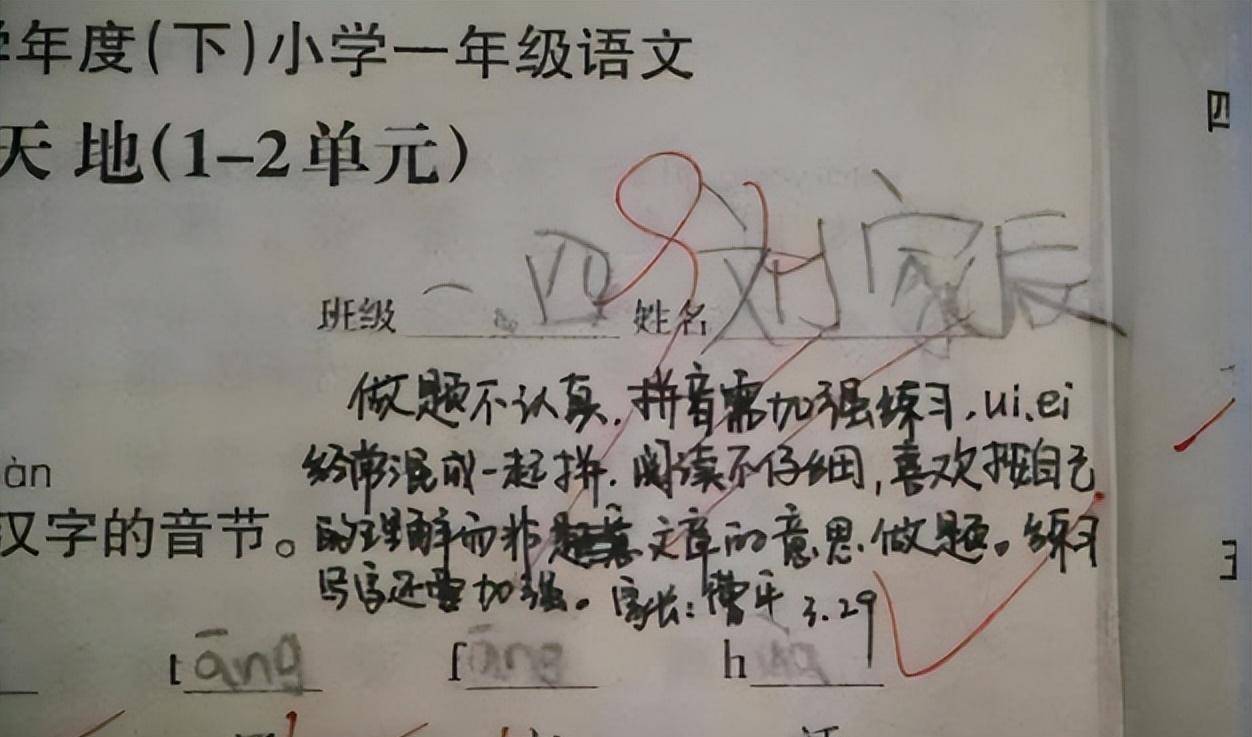 年度(下)小学一年级语文
天地(1-2单元)
四
班级 一.四 姓名 刘家辰
做题不认真.拼音需加强练习.ui.ei
经常混成一起拼.阅读不仔细,喜欢把自己
àn
汉字的音节。
的理解而非文章的意思.做题。练习
写字还要加强。家长:曹平 3.29
t āng f āng h